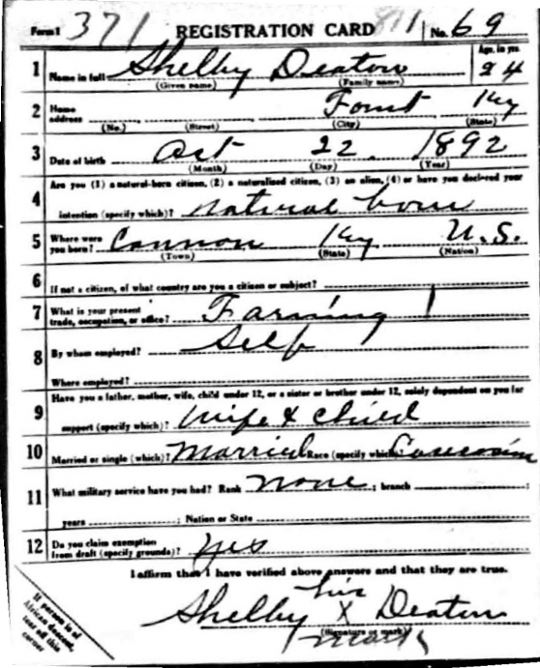 Form 1 371 REGISTRATION CARD 811 No. 69
1 Name in full Shelby Deaton Age, in yrs. 24
(Given name) (Family name)
2 Home address Ky
(No.) (Street) (City) (State)
3 Date of birth Oct 22 1892
(Month) (Day) (Year)
Are you (1) a natural-born citizen, (2) a naturalized citizen, (3) an alien, (4) or have you declared your
4 intention (specify which)? natural born
5 Where were you born? Cannon Ky U.S.
(Town) (State) (Nation)
6 If not a citizen, of what country are you a citizen or subject?
7 What is your present trade, occupation, or office? Farming 1
8 By whom employed? Self
Where employed?
Have you a father, mother, wife, child under 12, or a sister or brother under 12, solely dependent on you for
9 support (specify which)? Wife & child
10 Married or single (which)? Married Race (specify which)?
11 What military service have you had? Rank none ; branch ;
years ; Nation or State
12 Do you claim exemption from draft (specify grounds)? Yes
I affirm that I have verified above answers and that they are true.
his
Shelby X Deaton
(Signature or mark)
mark
If person is of
African descent,
tear off this
corner